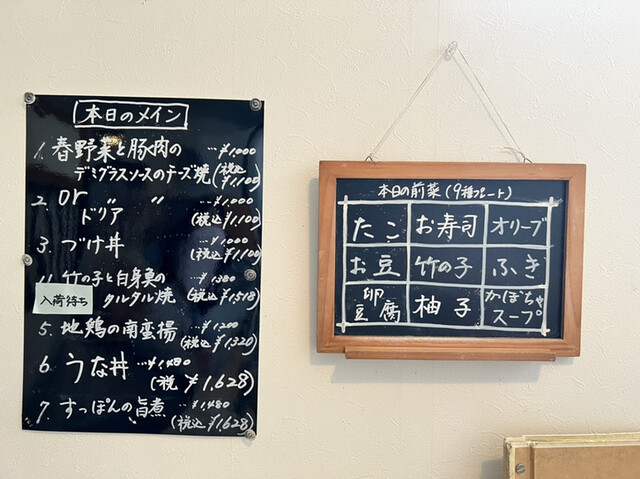 本日のメイン
1. 春野菜と豚肉の …¥1,000
デミグラスソースのチーズ焼 (税込 ¥1,100)
2. or 〃 〃 …¥1,000
ドリア (税込 ¥1,100)
3. づけ丼 …¥1,000
(税込 ¥1,100)
竹の子と白身魚の …¥1,380
入荷待ち タルタル焼 (税込 ¥1,518)
5. 地鶏の南蛮揚 …¥1,200
(税込 ¥1,320)
6. うな丼 …¥1,480
(税 ¥1,628)
7. すっぽんの旨煮 …¥1,480
(税込 ¥1,628)
本日の前菜(9種プレート)
たこ お寿司 オリーブ
お豆 竹の子 ふき
卵豆腐 柚子 かぼちゃスープ